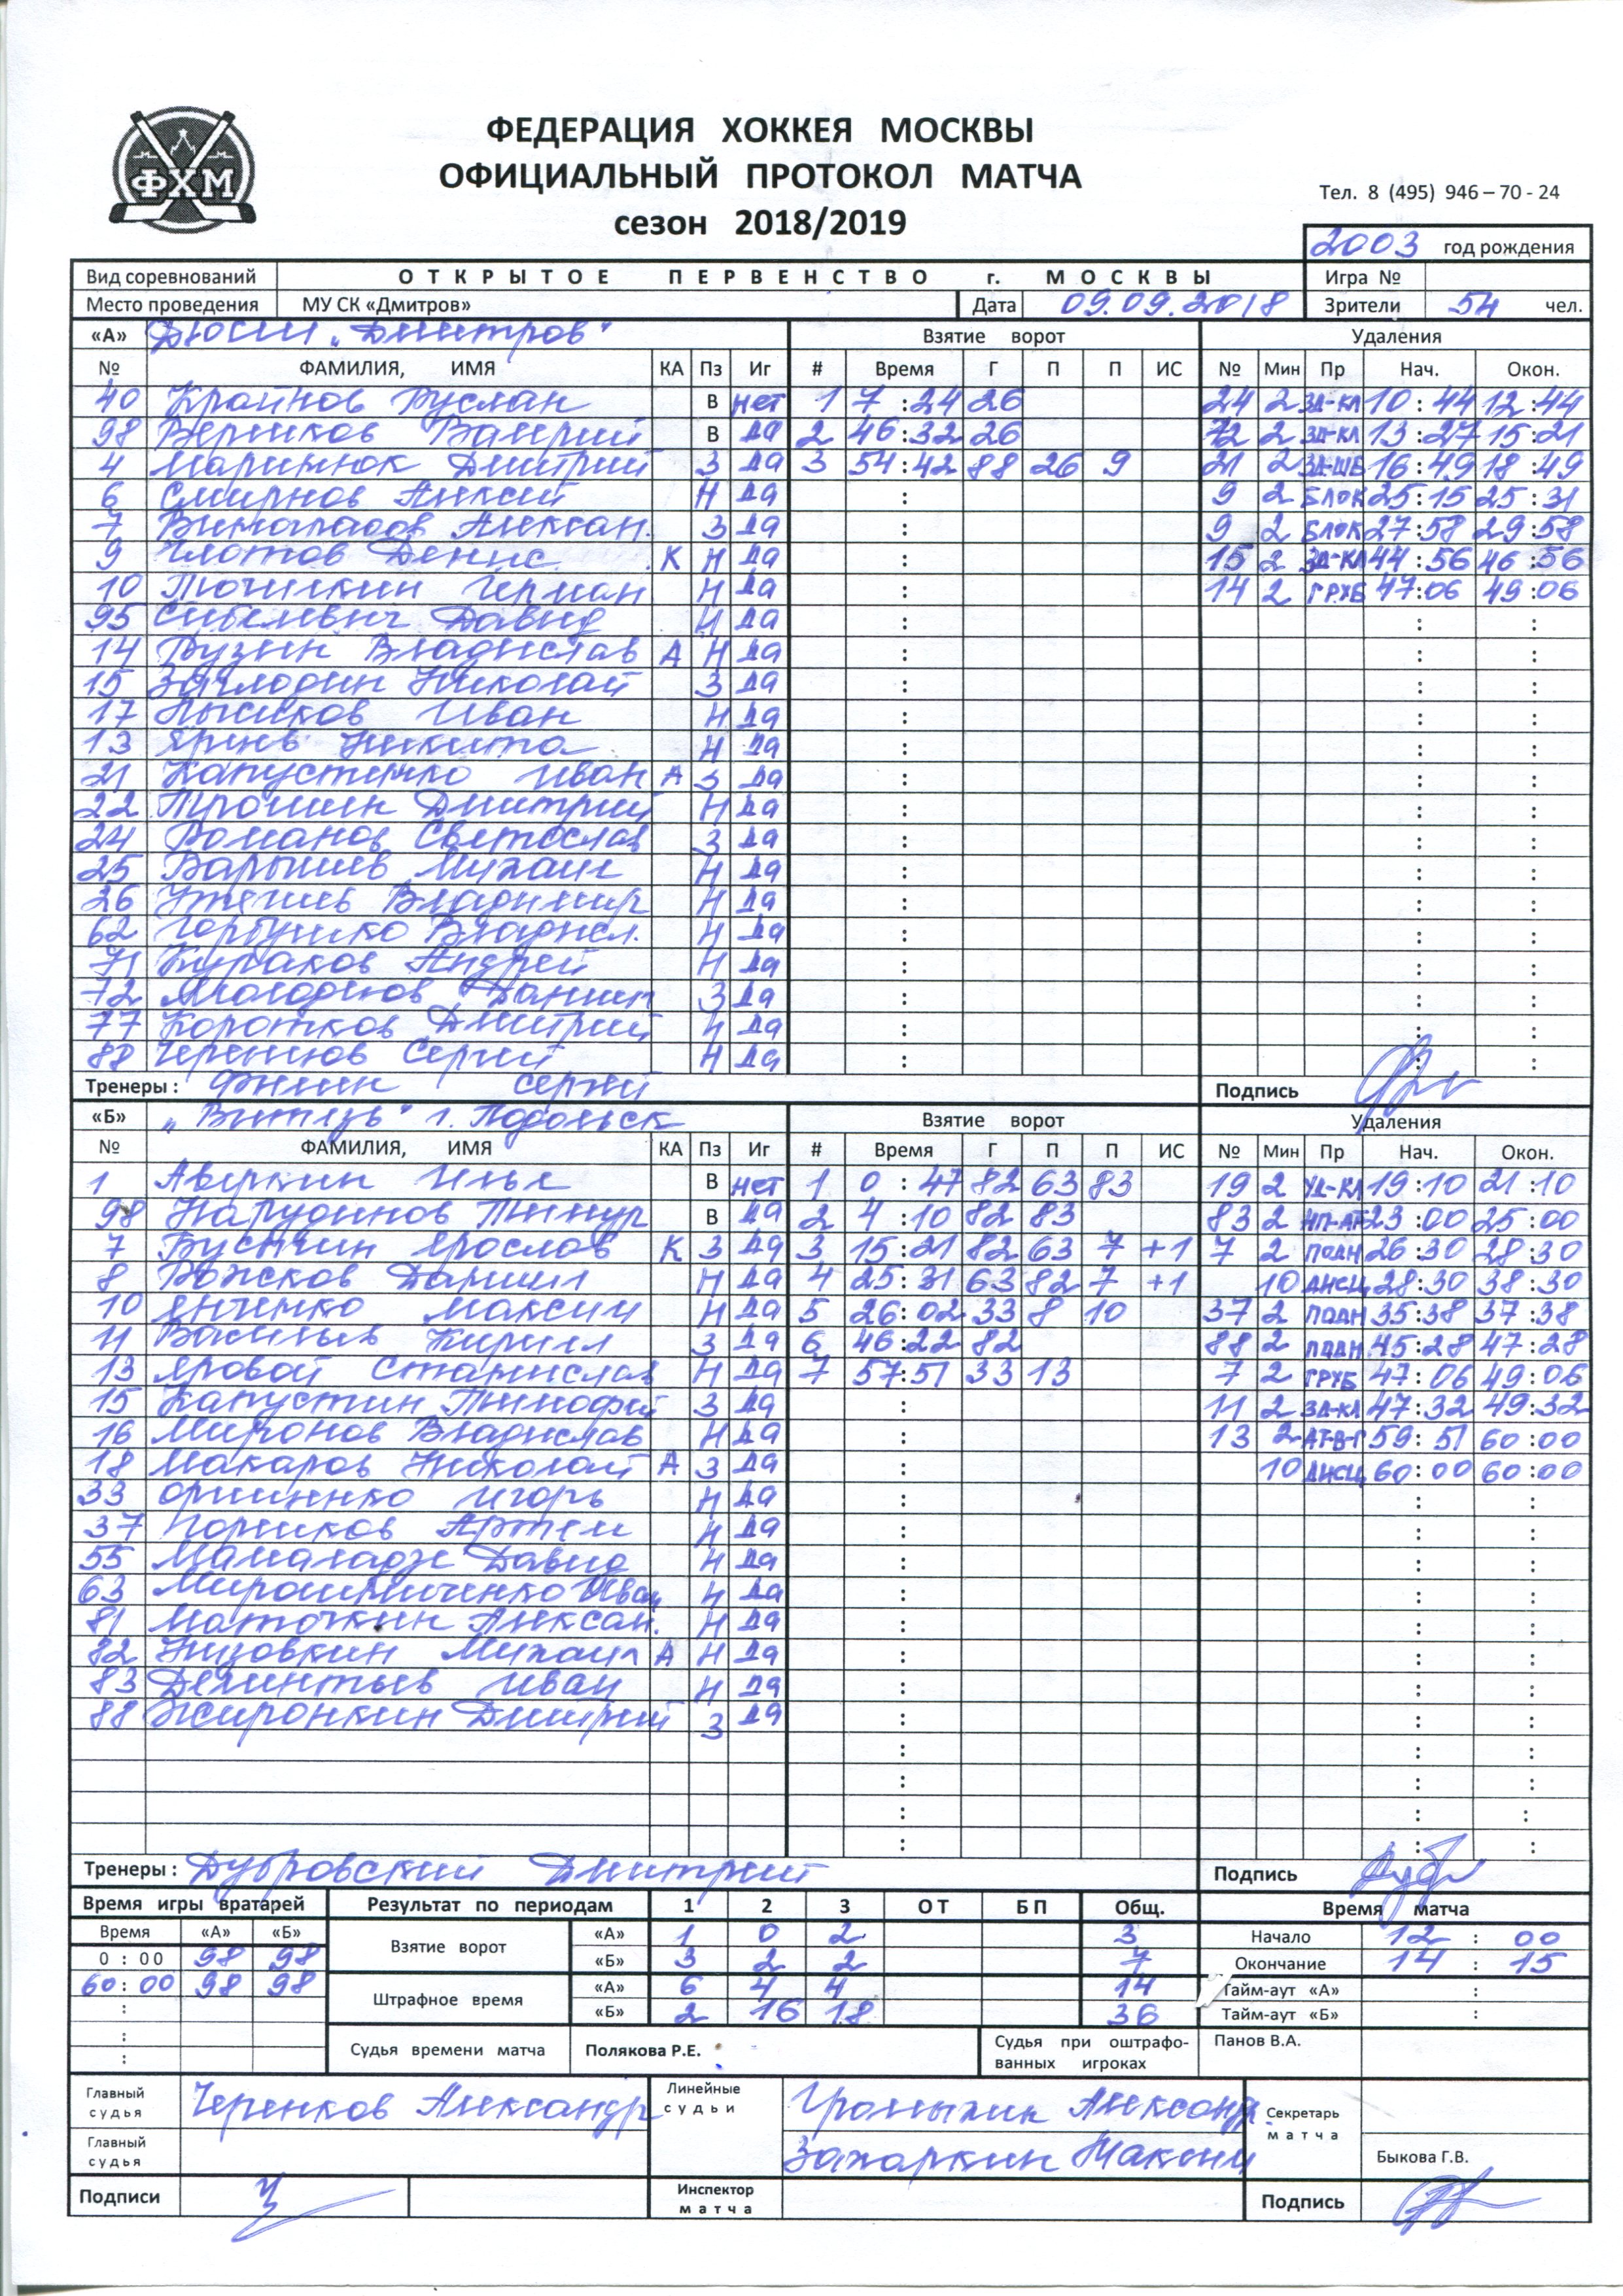 ФХМ
ФЕДЕРАЦИЯ ХОККЕЯ МОСКВЫ
ОФИЦИАЛЬНЫЙ ПРОТОКОЛ МАТЧА
сезон 2018/2019
Тел. 8 (495) 946 – 70 - 24
2003 год рождения
Вид соревнований ОТКРЫТОЕ ПЕРВЕНСТВО г. МОСКВЫ Игра №
Место проведения МУ СК «Дмитров» Дата 09.09.2018 Зрители 54 чел.
«А» ДЮСШ „Дмитров" Взятие ворот Удаления
№ ФАМИЛИЯ, ИМЯ КА Пз Иг # Время Г П П ИС № Мин Пр Нач. Окон.
40 Крайнов Руслан В нет 1 7:24 26 24 2 ЗД-КЛ 10:44 12:44
98 Вершков Валерий В да 2 46:32 26 72 2 ЗД-КЛ 13:27 15:21
4 Маринюк Дмитрий З да 3 54:42 88 26 9 21 2 ЗД-ШБ 16:49 18:49
6 Смирнов Алексей Н да : 9 2 БЛОК 25:15 25:31
7 Виноградов Алексан. З да : 9 2 БЛОК 27:58 29:58
9 Глотов Денис К Н да : 15 2 ЗД-КЛ 44:56 46:56
10 Точилкин Герман Н да : 14 2 ГРУБ 47:06 49:06
95 Давид Н да : : :
14 Рузин Владислав А Н да : : :
15 Николай З да : : :
17 Лысиков Иван Н да : : :
13 Никита Н да : : :
21 Капустенко Иван А З да : : :
22 Трошин Дмитрий Н да : : :
24 Романов Светослав З да : : :
25 Барышев Михаил Н да : : :
26 Утешев Владимир Н да : : :
62 Горбунко Владисл. Н да : : :
71 Кураков Андрей Н да : : :
72 Молодцов Даниил З да : : :
77 Коротков Дмитрий Н да : : :
88 Черенков Сергей Н да : : :
Тренеры : Фимин Сергей Подпись
«Б» „Витязь" г. Подольск Взятие ворот Удаления
№ ФАМИЛИЯ, ИМЯ КА Пз Иг # Время Г П П ИС № Мин Пр Нач. Окон.
1 Аверкин Илья В нет 1 0:47 82 63 83 19 2 УД-КЛ 19:10 21:10
98 Наружинов Тимур В да 2 4:10 82 83 83 2 НП-АТ 23:00 25:00
7 Бустин Ярослав К З да 3 15:21 82 63 7 +1 7 2 ПОДН 26:30 28:30
8 Рожков Даниил Н да 4 25:31 63 82 7 +1 10 ДИСЦ 28:30 38:30
10 Янченко Максим Н да 5 26:02 33 8 10 37 2 ПОДН 35:38 37:38
11 Васильев Кирилл З да 6 46:22 82 88 2 ПОДН 45:28 47:28
13 Яровой Станислав Н да 7 57:51 33 13 7 2 ГРУБ 47:06 49:06
15 Капустин Тимофей З да : 11 2 ЗД-КЛ 47:32 49:32
16 Миронов Владислав Н да : 13 2 АТ-В-Г 59:51 60:00
18 Макаров Николай А З да : 10 ДИСЦ 60:00 60:00
33 Оришенко Игорь Н да : : :
37 Горшков Артем Н да : : :
55 Мамаладзе Давид Н да : : :
63 Мирошниченко Иван Н да : : :
81 Маточкин Алексан. Н да : : :
82 Низовкин Михаил А Н да : : :
83 Дементьев Иван Н да : : :
88 Жиронкин Дмитрий З да : : :
: : :
: : :
: : :
: : :
Тренеры : Дубровский Дмитрий Подпись
Время игры вратарей Результат по периодам 1 2 3 ОТ БП Общ. Время матча
Время «А» «Б» Взятие ворот «А» 1 0 2 3 Начало 12 : 00
0 : 00 98 98 «Б» 3 2 2 7 Окончание 14 : 15
60:00 98 98 Штрафное время «А» 6 4 4 14 Тайм-аут «А» :
: «Б» 2 16 18 36 Тайм-аут «Б» :
: Судья времени матча Полякова Р.Е. Судья при оштрафо- Панов В.А.
: ванных игроках
Главный судья Черенков Александр Линейные судьи Громыхин Александр Секретарь матча
Главный судья Захаркин Максим Быкова Г.В.
Подписи Инспектор матча Подпись